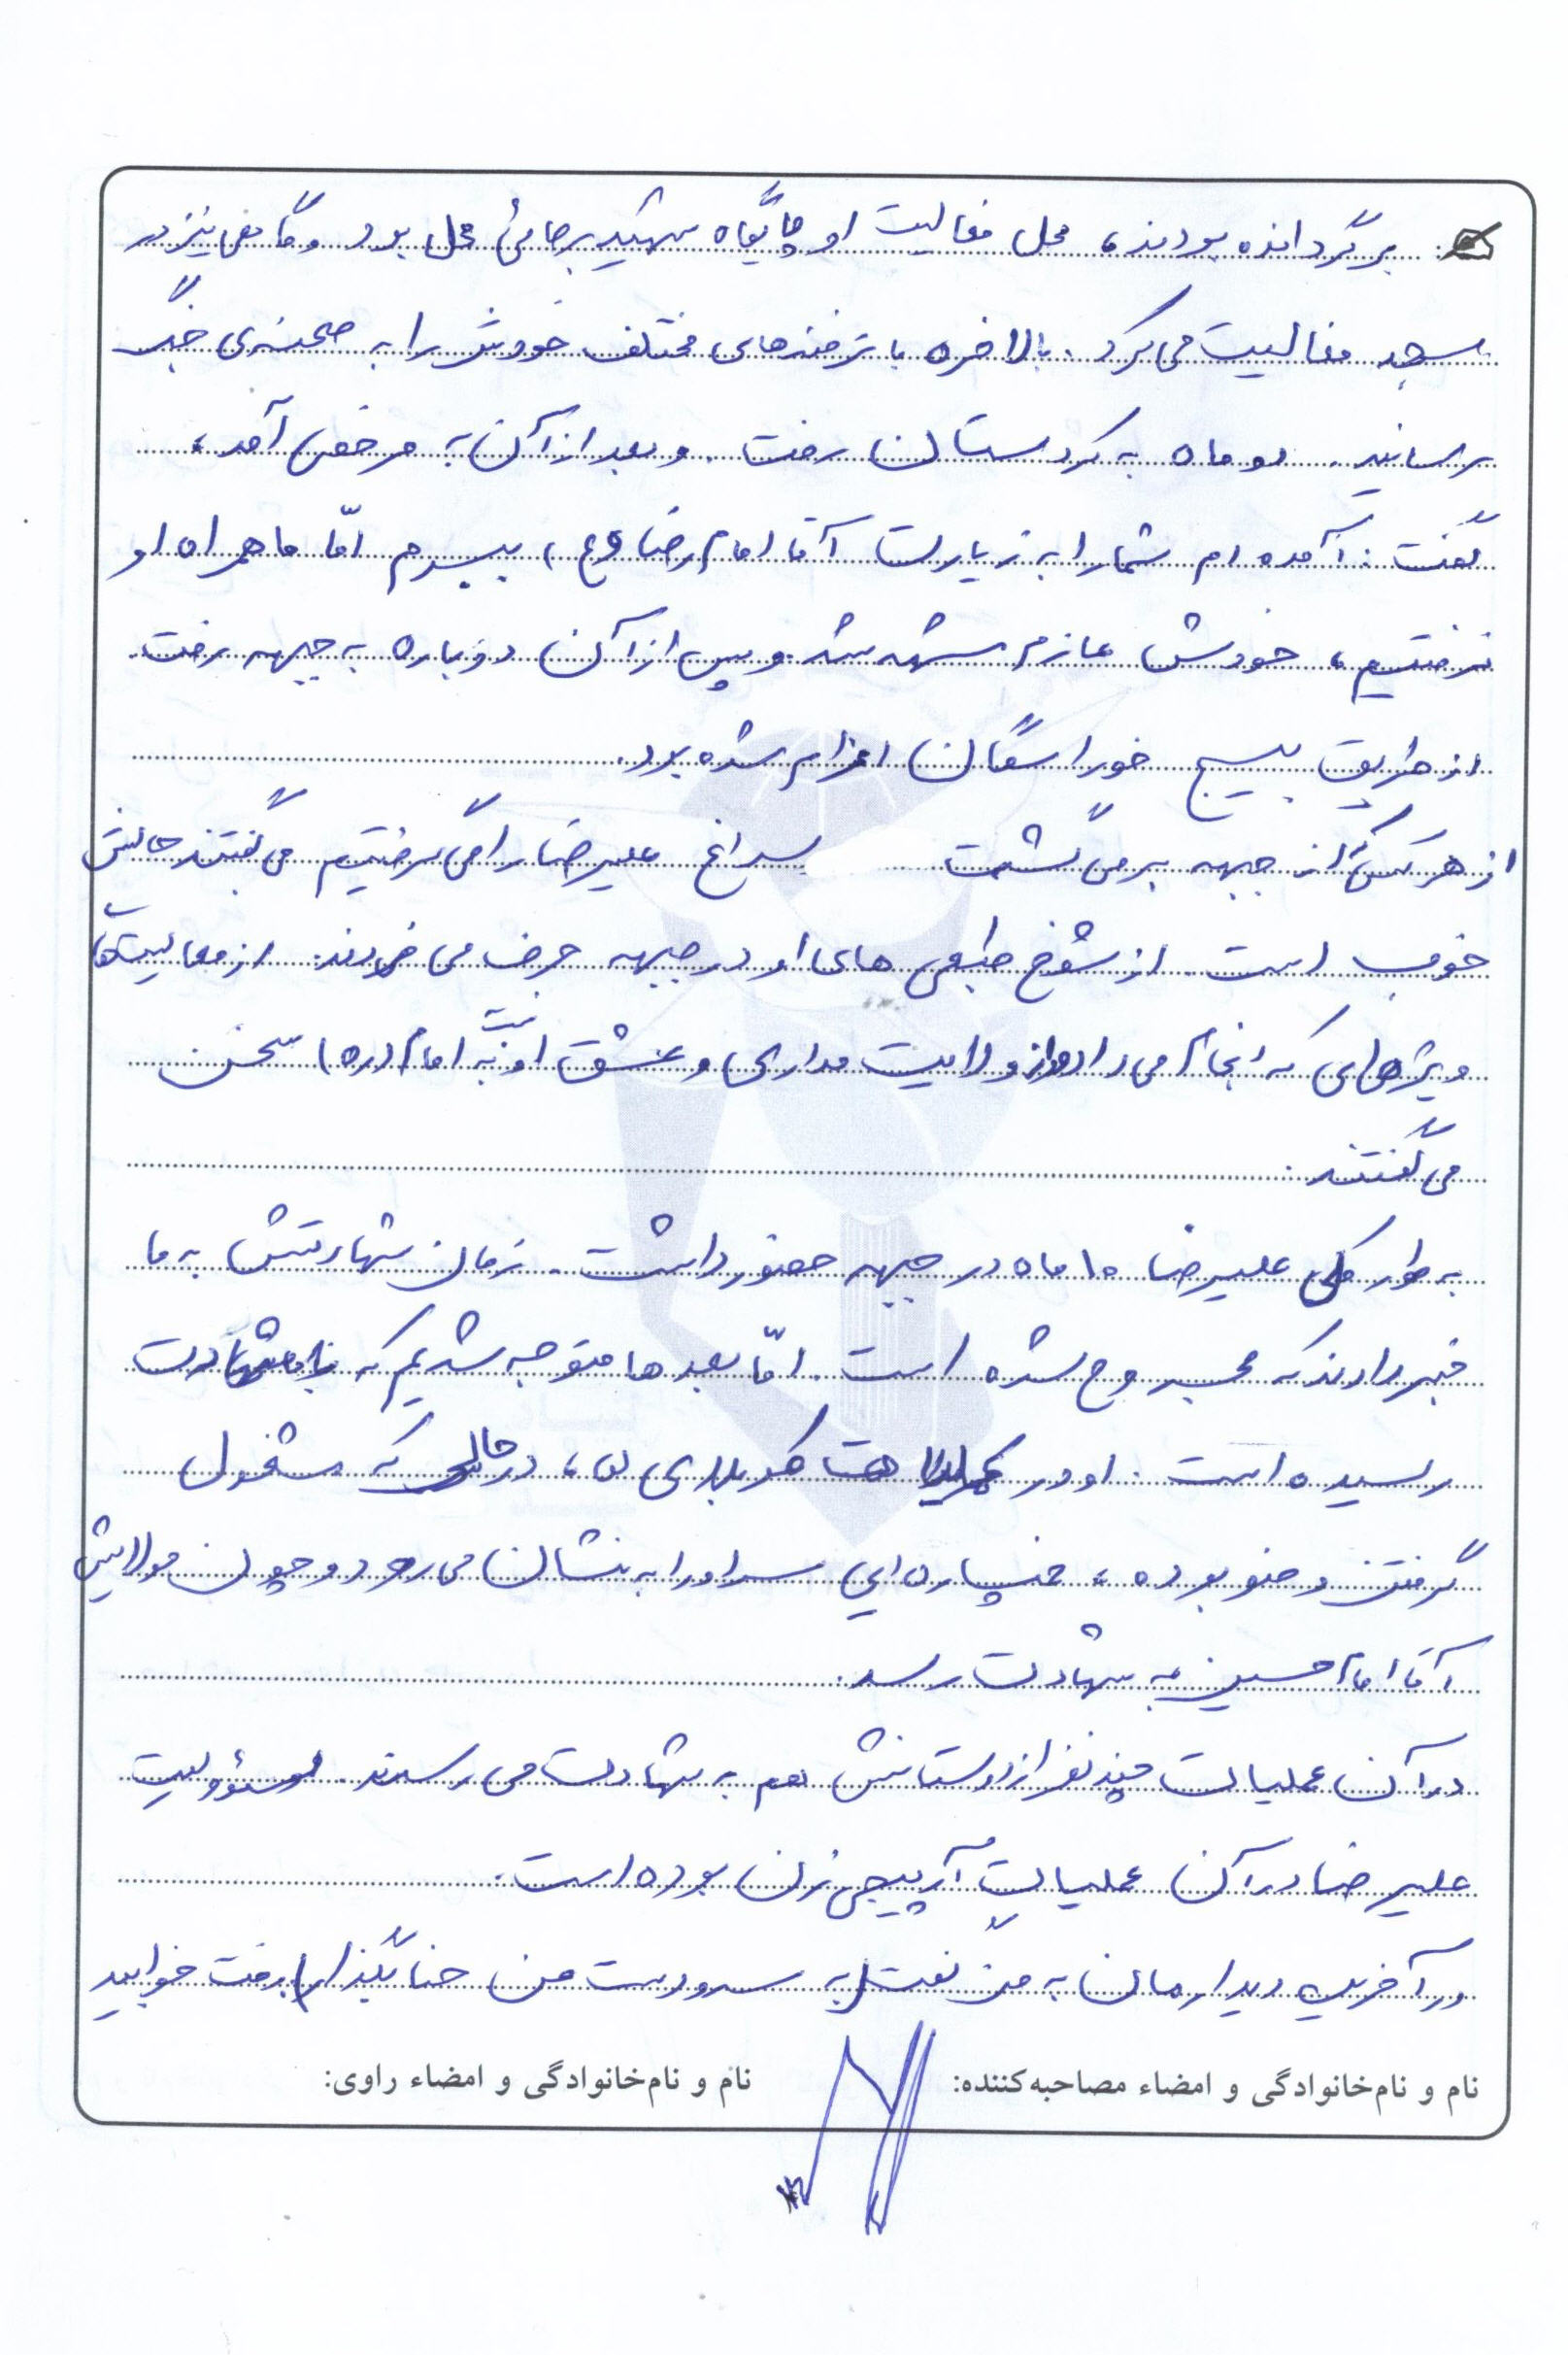 برگردانده بودند، محل فعالیت او پایگاه شهید رجائی محل بود و گاهی نیز در
مسجد فعالیت می‌کرد. بالاخره با ترفندهای مختلف خودش را به صحنه‌ی جنگ
رسانید. دو ماه به کردستان رفت. و بعد از آن به مرخصی آمد،
گفت: آمده ام شما را به زیارت آقا امام رضا (ع) ببرم امّا ما همراه او
نرفتیم، خودش عازم مشهد شد و پس از آن دوباره به جبهه رفت
از طریق بسیج خوراسگان اعزام شده بود.
از هر کس که از جبهه برمی‌گشت سراغ علیرضا را می‌گرفتیم می‌گفتند حالش
خوب است. از شوخ طبعی های او در جبهه حرف می‌زدند. از فعالیت‌های
ویژه‌ای که انجام می‌داد و از ولایت مداری و عشق او نسبت به امام (ره) سخن
می‌گفتند.
به طور کلی علیرضا ۱۰ ماه در جبهه حضور داشت. زمان شهادتش به ما
خبر دادند که مجروح شده است. امّا بعدها متوجه شدیم که به شهادت
رسیده است. او در کربلای ۵، در حالی که مشغول
گرفتن وضو بوده، خمپاره‌ایی سر او را به نشان می‌رود و چون مولایش
آقا امام حسین به شهادت رسد.
در آن عملیات چند نفر از دوستانش هم به شهادت می‌رسند. مسئوولیت
علیرضا در آن عملیات آرپیجی زن بوده است.
در آخرین دیدارمان به من گفت (به سر و دست من حنا بگذار) رفت خوابید
نام و نام‌خانوادگی و امضاء مصاحبه‌کننده: نام و نام‌خانوادگی و امضاء راوی: